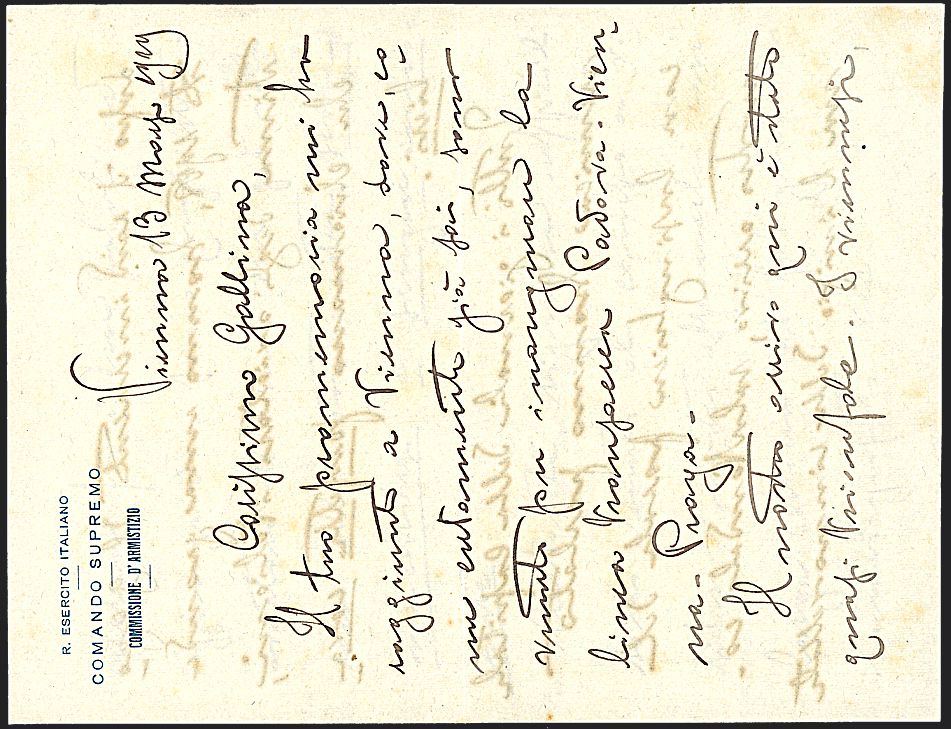 R. ESERCITO ITALIANO
COMANDO SUPREMO
COMMISSIONE D'ARMISTIZIO
Vienna 13 Marzo 1919
Carissimo Gallina,
Il tuo promemoria mi ha
raggiunto a Vienna, dove, co-
me certamente già sai, sono
venuto per inaugurare la
linea Transaerea Padova-Vien-
na-Praga-
Il nostro arrivo qui è stato
quasi trionfale. I viennesi,